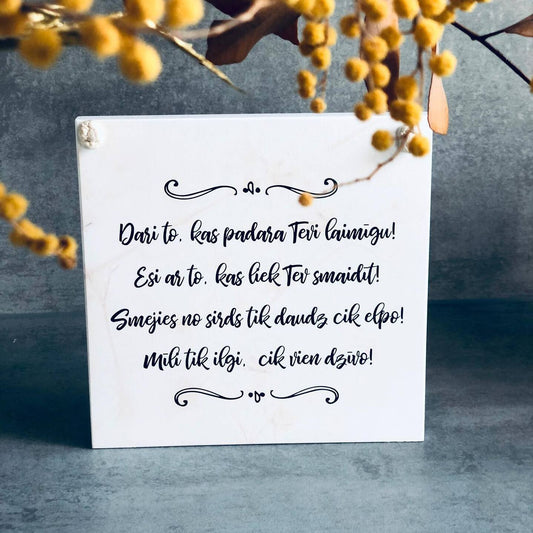 Dari to, kas padara Tevi laimīgu!
Esi ar to, kas liek Tev smaidīt!
Smejies no sirds tik daudz cik elpo!
Mīli tik ilgi, cik vien dzīvo!